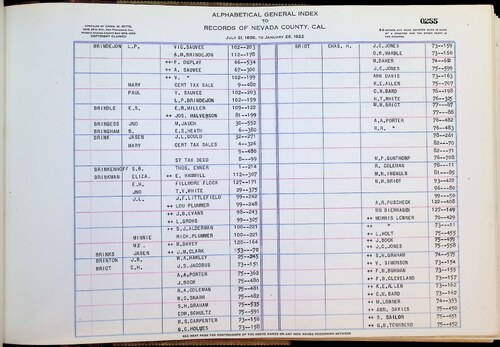 ALPHABETICAL GENERAL INDEX
TO
RECORDS OF NEVADA COUNTY, CAL.
JULY 21, 1856, TO JANUARY 28, 1922
0255
COPYRIGHT CLAIMED
BRINDEJON L.P. VIG.SAUVEE 102--203
A.M.BRINDEJON 112--178
++ F. DUPLAY 66--534
++ A. SAUVEE 62--300
++ V. " 102--199
MARY CERT TAX SALE 9--480
PAUL V. SAUVEE 102--203
L.P.BRINDEJON 102--159
BRINDLE E.S. E.B.MILLER 109--122
++ JOS. HALVERSON 81--199
BRINGESS JNO M.JAUCH 30--552
BRINGHAM S. E.S.HEATH 6--380
BRINK JASEN J.L.GOULD 32--271
MARY CERT TAX SALES 4--326
5--480
ST TAX DEED 8--99
BRINKENHOFF S.B. THOS. ENNER 1--214
BRINKMAN ELIZA. ++ E. HAMMILL 112--307
E.H. FILLMORE FLOCK 127--171
JNO T.V.WHITE 29--375
J.L. J.F.LITTLEFIELD 99--242
++ LOU PLUMMER 99--248
++ J.B.EVANS 98--243
++ L.GROHS 98--305
++ S.J.ALDERMAN 100--221
MINNIE RICH.PLUMMER 100--221
WM. ++ M.DAVEY 120--164
BRINKS JASEN ++ J.M.CLARK 53--70
BRINTON J.B. W.A.HARLEY 75--245
BRIOT C.H. J.S.JACOBUS 73--151
A.A.PORTER 75--362
J.BOOK 75--480
R.A.COLEMAN 75--481
W.S.SHARP 75--482
S.H.GRAHAM 75--535
EDW.SCHULTZ 75--591
W.S.CARPENTER 73--156
G.C.HOLMES 73--158
BRIOT CHAS. H. J.C.JONES 73--159
O.H.MARBLE 73--160
M.BAKER 74--662
J.C.JONES 75--599
ANN DAVIES 73--163
K.E.ALLEN 75--707
C.H.BARD 76--198
H.T.WHITE 76--305
M.M.BRIOT 77--87
77--88
A.A.PORTER 76--482
R.R. " 76--483
78--261
82--70
82--71
W.P.GUNTHORP 76--708
R. COLEMAN 78--11
M.B.INGALLS 81--85
N.H.BRIOT 93--428
96--80
92--50
A.R.FUSCHER 122--408
WM BIERHAUS 127--149
++ MORRIS LOBNER 70--429
++ " 73--11
++ L.HOLT 75--455
++ J.BOOK 75--457
++ J.C.JONES 75--598
++ S.H.GRAHAM 74--575
++ F. SIMONSON 73--154
++ F.W.BURHAM 73--155
++ F.B.CLEVELAND 73--157
++ K.E.ALLEN 73--162
++ C.H.BARD 73--162
++ M.LOBNER 74--353
++ ABRL. DAVIES 75--450
++ S. BAILOR 75--451
++ G.B.TOWNSEND 75--452